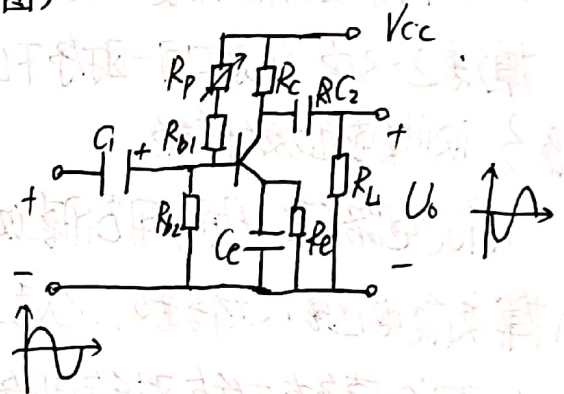 图)
Vcc
Rp
Rc
C2
C1
+
Rb1
+
+
RL
Uo
Rb2
Ce
Re
-
-